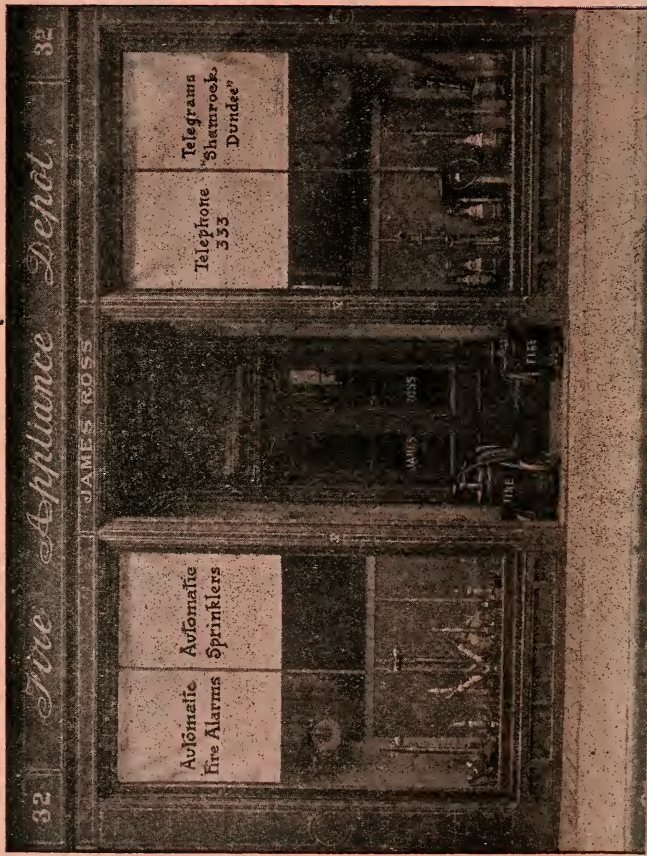 32 Fire Appliance Depot. 32
JAMES ROSS
Automatic
Fire Alarms
Automatic
Sprinklers
Telephone
333
Telegrams
"Shamrock,
Dundee"
JAMES ROSS
FIRE
FIRE